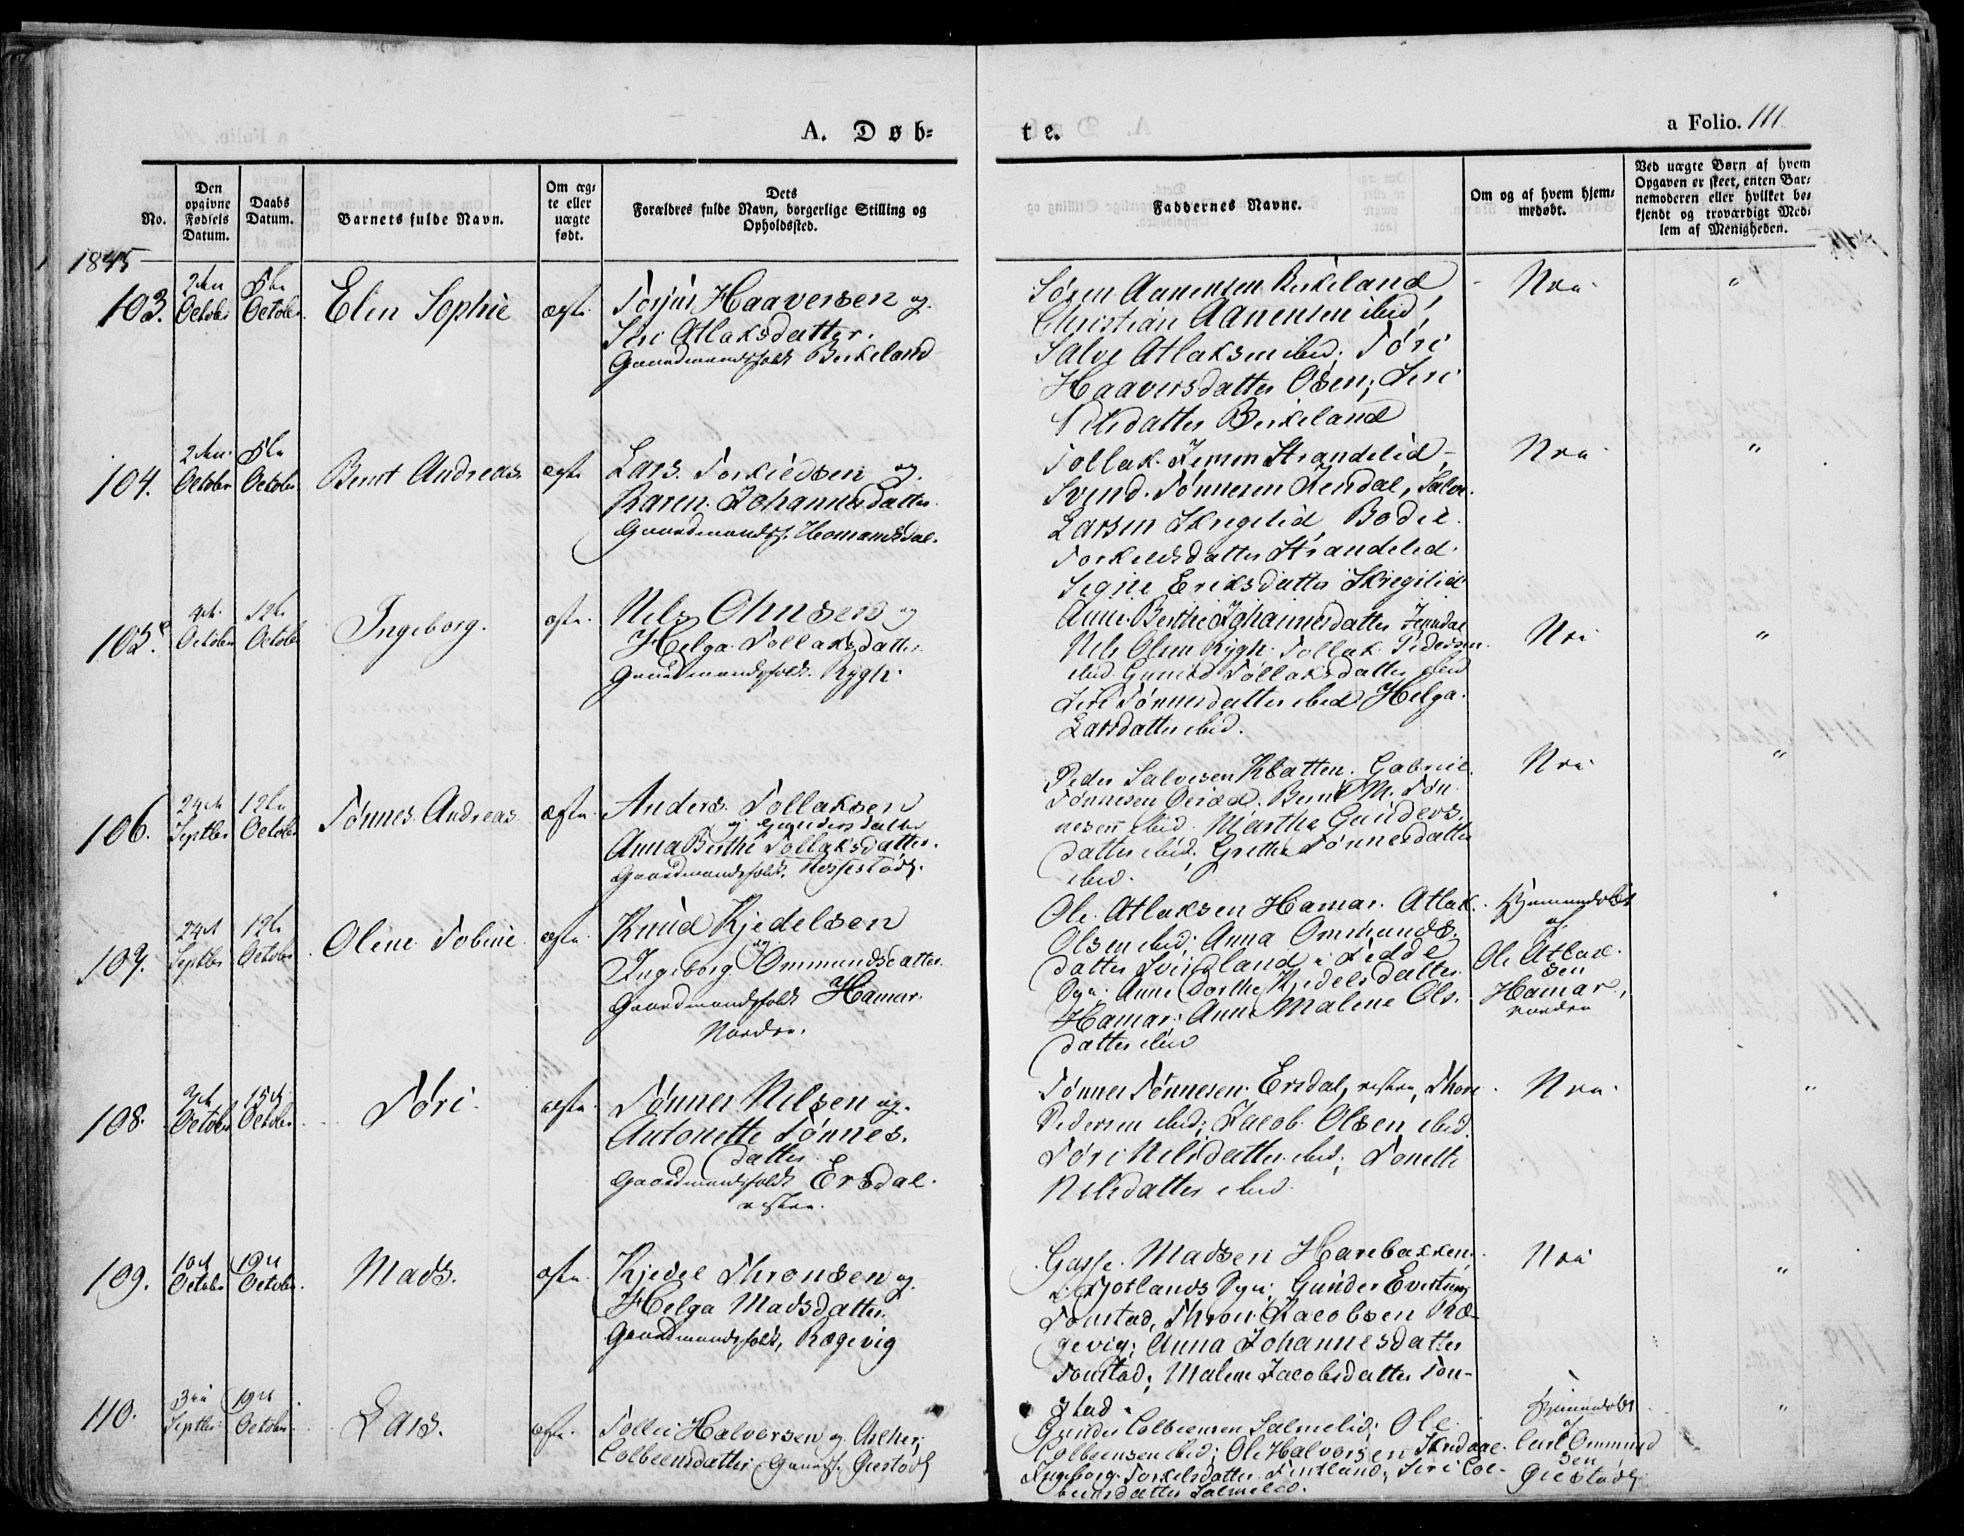 A. Døb-
te.
a Folio. 111
No.
Den opgivne Fødsels Datum.
Daabs Datum.
Barnets fulde Navn.
Om ægte eller uægte født.
Dets Forældres fulde Navn, borgerlige Stilling og Opholdssted.
Faddernes Navne.
Om og af hvem hjemmedøbt.
Ved uægte Børn af hvem Opgaven er skeet, enten Barnemoderen eller hvilket bekjendt og troværdigt Medlem af Menigheden.
1845
103.
October
October
Elen Sophie
ægte
Torjus Haaversen og
Siri Atlaksdatter.
Gaardmandsfolk Birkeland
Søren Aanensen Birkeland
Christian Aanensen ibid,
Salve Atlaksen ibid; Tøri
Haaversdatter Osen; Siri
Nilsdatter Birkeland
Nei
"
104.
October
October
Bernt Andreas
ægte
Lars Torkildsen og
Karen Johannesdatter
Gaardmandsf. Homandsdal.
Tollak Jensen Strandelid,
Svend Tønnesen Lendal, Salve
Larsen Skregelid Bodil
Torkildsdatter Strandelid.
Signe Eriksdatter Skregelid
Nei
"
105.
October
12te
October
Ingeborg.
ægte
Nils Olinsen og
Helga Tollaksdatter
Gaardmandsfolk. Rygh.
Anne Berthe Johannesdatter
Nils Olsen Rygh. Tollak Pedersen
ibid Gunild Tollaksdatter ibid
Siri Tønnesdatter ibid Helga
Larsdatter ibid.
Nei
"
106.
Septber
12te
October
Tønnes Andreas
ægte
Anders Tollaksen
og Gundersdatter
Anna Berthe Tollaksdatter.
Gaardmandsfolk.
Peder Salvesen Klatten. Gabriel
Tønnesen Bernt M. Tøn-
nesen ibid. Martha Gunders-
datter ibid. Grethe Tønnesdatter
ibid.
Nei
"
107.
Septber
12te
October
Olene Tobine
ægte
Knud Kjedelsen
og
Ingeborg Ommundsdatter
Gaardmandsfolk Hamar
Nordre.
Ole Atlaksen Hamar. Atlak
Olsen ibid; Anna Ommunds-
datter Svindland i Fedde
Sgn. Anne Dorthe Kjedelsdatter
Hamar; Anne Malene Ols-
datter ibid
Hjemmedøbt
af
Ole Atlak-
sen
Hamar,
nordre
108.
October
15de
October
Tøri.
ægte
Tønnes Nilsen og
Antonette Tønnes-
datter
Gaardmandsfolk Ersdal
vestre.
Tønnes Tønnesen Ersdal, vestre, Thore
Pedersen ibid; Jacob Olsen ibid.
Tøri Nilsdatter ibid; Tonette
Nilsdatter ibid.
Nei
"
109.
10de
October
19de
October
Mads.
ægte
Kjedel Thronsen og
Helga Madsdatter
Gaardmandsfolk, Rægevig
Gasse Madsen Harebakken
i Hjotlands Sgn; Gunder Evertsen
Tonstad, Thron Jacobsen Ræ-
gevig; Anna Johannesdatter
Tonstad; Malene Jacobsdatter Ton-
stad.
Nei
"
110.
Septber
19de
October
Lars.
ægte
Tollei Halvorsen og
Colbeensdatter Gaardf. Gjestad
Gunder Colbeensen Salmelid; Ole
Colbeensen ibid; Ole Halvorsen
Ingeborg Torkelsdatter Fintland; Siri Col-
beensdatter Salmelid.
Hjemmedøbt
af
Carl Ommund
sen
"